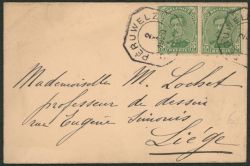 PERUWELZ
Mademoiselle M. Lochet
professeur de dessin
rue Eugène Simonis
Liége